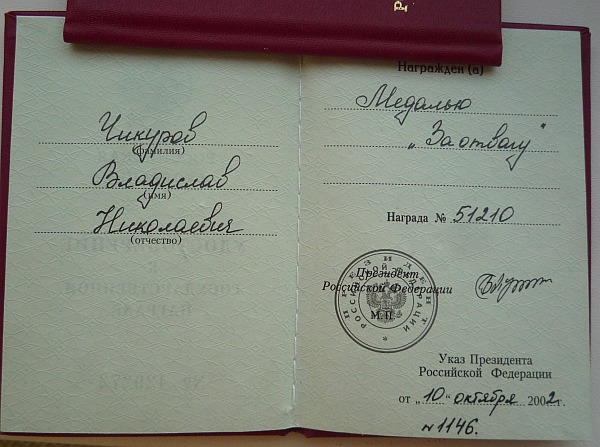 Чикуров
(фамилия)
Владислав
(имя)
Николаевич
(отчество)
Награжден (а)
Медалью
„За отвагу"
Награда № 51210
ПРЕЗИДЕНТ
РОССИЙСКОЙ ФЕДЕРАЦИИ
Президент
Российской Федерации
М.П.
Указ Президента
Российской Федерации
от „10" октября 2002 г.
№ 1146.